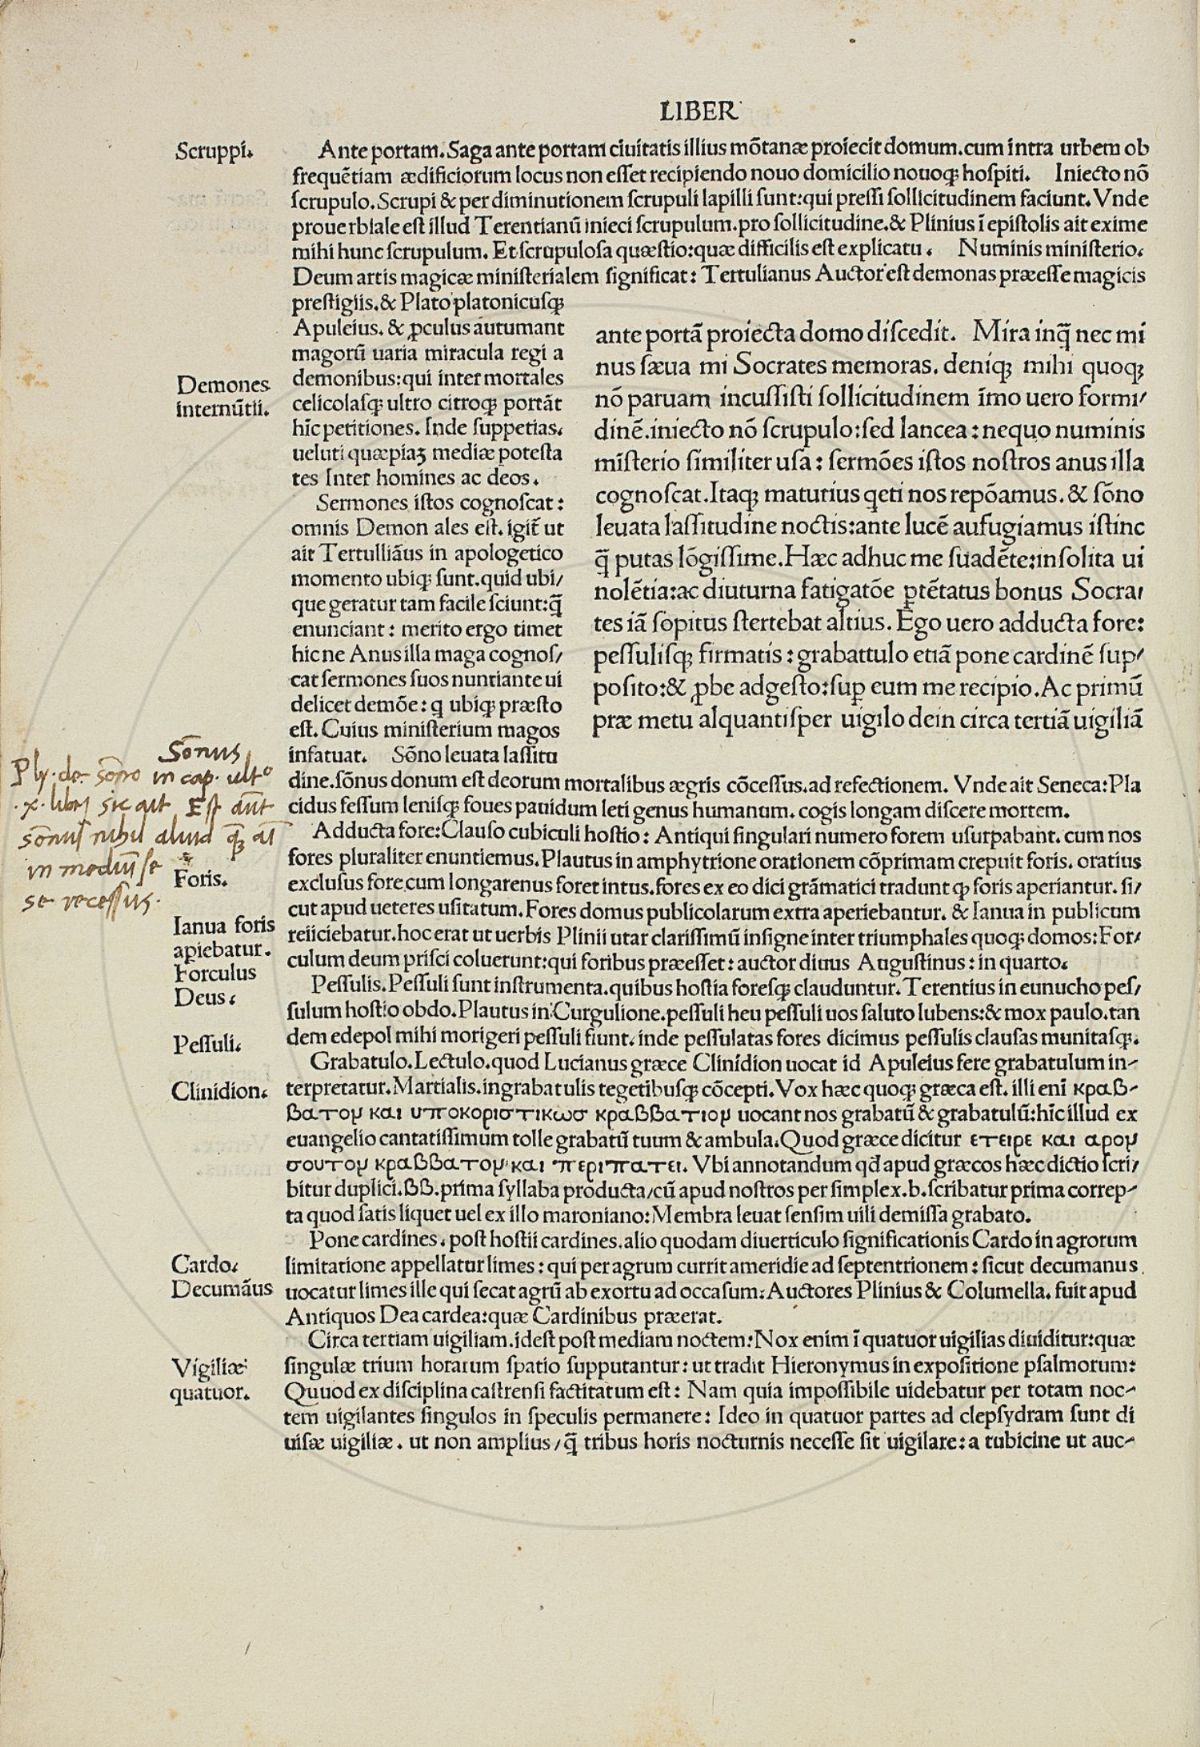 LIBER
Scruppi.
Ante portam. Saga ante portam ciuitatis illius mōtanæ proiecit domum. cum intra urbem ob
frequētiam ædificiorum locus non esset recipiendo nouo domicilio nouoqꝫ hospiti. Iniecto nō
scrupulo. Scrupi & per diminutionem scrupuli lapilli sunt: qui pressi sollicitudinem faciunt. Vnde
prouerbiale est illud Terentianū inieci scrupulum. pro sollicitudine. & Plinius ī epistolis ait exime
mihi hunc scrupulum. Et scrupulosa quæstio: quæ difficilis est explicatu. Numinis ministerio.
Deum artis magicæ ministerialem significat: Tertulianus Auctor est demonas præesse magicis
prestigiis. & Plato platonicusqꝫ
Apuleius. & ꝓculus autumant
magorū uaria miracula regi a
Demones
internūtii.
demonibus: qui inter mortales
celicolasqꝫ ultro citroqꝫ portāt
hīc petitiones. Inde suppetias.
ueluti quæpiaꝫ mediæ potesta
tes Inter homines ac deos.
Sermones istos cognoscat:
omnis Demon ales est. igit̄ ut
ait Tertulliāus in apologetico
momento ubiqꝫ sunt. quid ubi/
que geratur tam facile sciunt: q̄
enunciant: merito ergo timet
hic ne Anus illa maga cognos/
cat sermones suos nuntiante ui
delicet demōe: q ubiqꝫ præsto
est. Cuius ministerium magos
infatuat. Sōno leuata lassitu
ante portā proiecta domo discedit. Mira inq̄ nec mi
nus sæua mi Socrates memoras. deniqꝫ mihi quoqꝫ
nō paruam incussisti sollicitudinem īmo uero formi/
dinē. iniecto nō scrupulo: sed lancea: nequo numinis
misterio similiter usa: sermōes istos nostros anus illa
cognoscat. Itaqꝫ maturius qeti nos repōamus. & sōno
leuata lassitudine noctis: ante lucē aufugiamus istinc
q̄ putas lōgissime. Hæc adhuc me suadēte: insolita ui
nolētia: ac diuturna fatigatōe ptētatus bonus Socra/
tes iā sopitus stertebat altius. Ego uero adducta fore:
pessulisqꝫ firmatis: grabattulo etiā pone cardinē sup/
posito: & ꝓbe adgesto: suꝑ eum me recipio. Ac primū
præ metu alquantisper uigilo dein circa tertiā uigiliā
Sōnus
Ply. de sōno in cap. ulto
.x. libri sic ait Est aut
sōnus nihil aliud q̄ aī
in mediū se
se recessus.
dine. sōnus donum est deorum mortalibus ægris cōcessus. ad refectionem. Vnde ait Seneca: Pla
cidus fessum lenisqꝫ foues pauidum leti genus humanum. cogis longam discere mortem.
Adducta fore: Clauso cubiculi hostio: Antiqui singulari numero forem usurpabant. cum nos
Foris.
fores pluraliter enuntiemus. Plautus in amphytrione orationem cōprimam crepuit foris. oratius
exclusus fore cum longarenus foret intus. fores ex eo dici grāmatici tradunt ꝙ foris aperiantur. si/
cut apud ueteres usitatum. Fores domus publicolarum extra aperiebantur. & Ianua in publicum
Ianua foris
apiebatur.
Forculus
Deus.
reiiciebatur. hoc erat ut uerbis Plinii utar clarissimū insigne inter triumphales quoqꝫ domos: For/
culum deum prisci coluerunt: qui foribus præesset: auctor diuus Augustinus: in quarto.
Pessulis. Pessuli sunt instrumenta. quibus hostia foresqꝫ clauduntur. Terentius in eunucho pes/
sulum hostio obdo. Plautus in Curgulione. pessuli heu pessuli uos saluto lubens: & mox paulo. tan
Pessuli.
dem edepol mihi morigeri pessuli fiunt. inde pessulatas fores dicimus pessulis clausas munitasqꝫ.
Grabatulo. Lectulo. quod Lucianus græce Clinidion uocat id Apuleius fere grabatulum in-
Clinidion.
terpretatur. Martialis. ingrabatulis tegetibusqꝫ cōcepti. Vox hæc quoqꝫ græca est. illi enī κραβ-
βατον και υποκοριστικωσ κραββατιον uocant nos grabatū & grabatulū: hīc illud ex
euangelio cantatissimum tolle grabatū tuum & ambula. Quod græce dicitur ετειρε και αρον
σουτον κραββατον και περιπατει. Vbi annotandum qđ apud græcos hæc dictio scri/
bitur duplici. ββ. prima syllaba producta/cū apud nostros per simplex. b. scribatur prima correp-
ta quod satis liquet uel ex illo maroniano: Membra leuat sensim uili demissa grabato.
Pone cardines. post hostii cardines. alio quodam diuerticulo significationis Cardo in agrorum
Cardo.
Decumāus
limitatione appellatur limes: qui per agrum currit ameridie ad septentrionem: sicut decumanus
uocatur limes ille qui secat agrū ab exortu ad occasum: Auctores Plinius & Columella. fuit apud
Antiquos Dea cardea: quæ Cardinibus præerat.
Circa tertiam uigiliam. idest post mediam noctem: Nox enim ī quatuor uigilias diuiditur: quæ
Vigiliæ
quatuor.
singulæ trium horarum spatio supputantur: ut tradit Hieronymus in expositione psalmorum:
Quuod ex disciplina castrensi factitatum est: Nam quia impossibile uidebatur per totam noc-
tem uigilantes singulos in speculis permanere: Ideo in quatuor partes ad clepsydram sunt di
uisæ uigiliæ. ut non amplius/q̄ tribus horis nocturnis necesse sit uigilare: a tubicine ut auc-